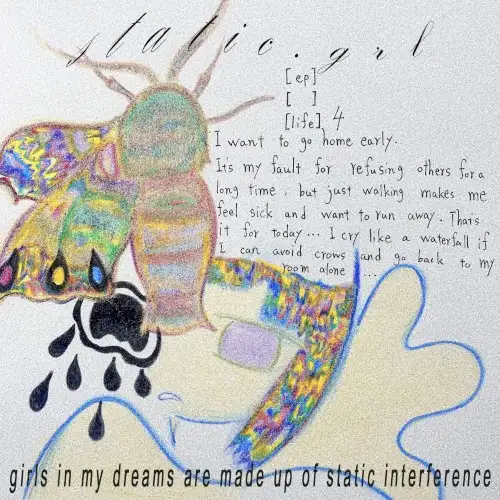 static.grl
[ep]
[ ]
[life] 4
I want to go home early.
It's my fault for refusing others for a
long time, but just walking makes me
feel sick and want to run away. Thats
it for today... I cry like a waterfall if
I can avoid crows and go back to my
room alone ...
girls in my dreams are made up of static interference